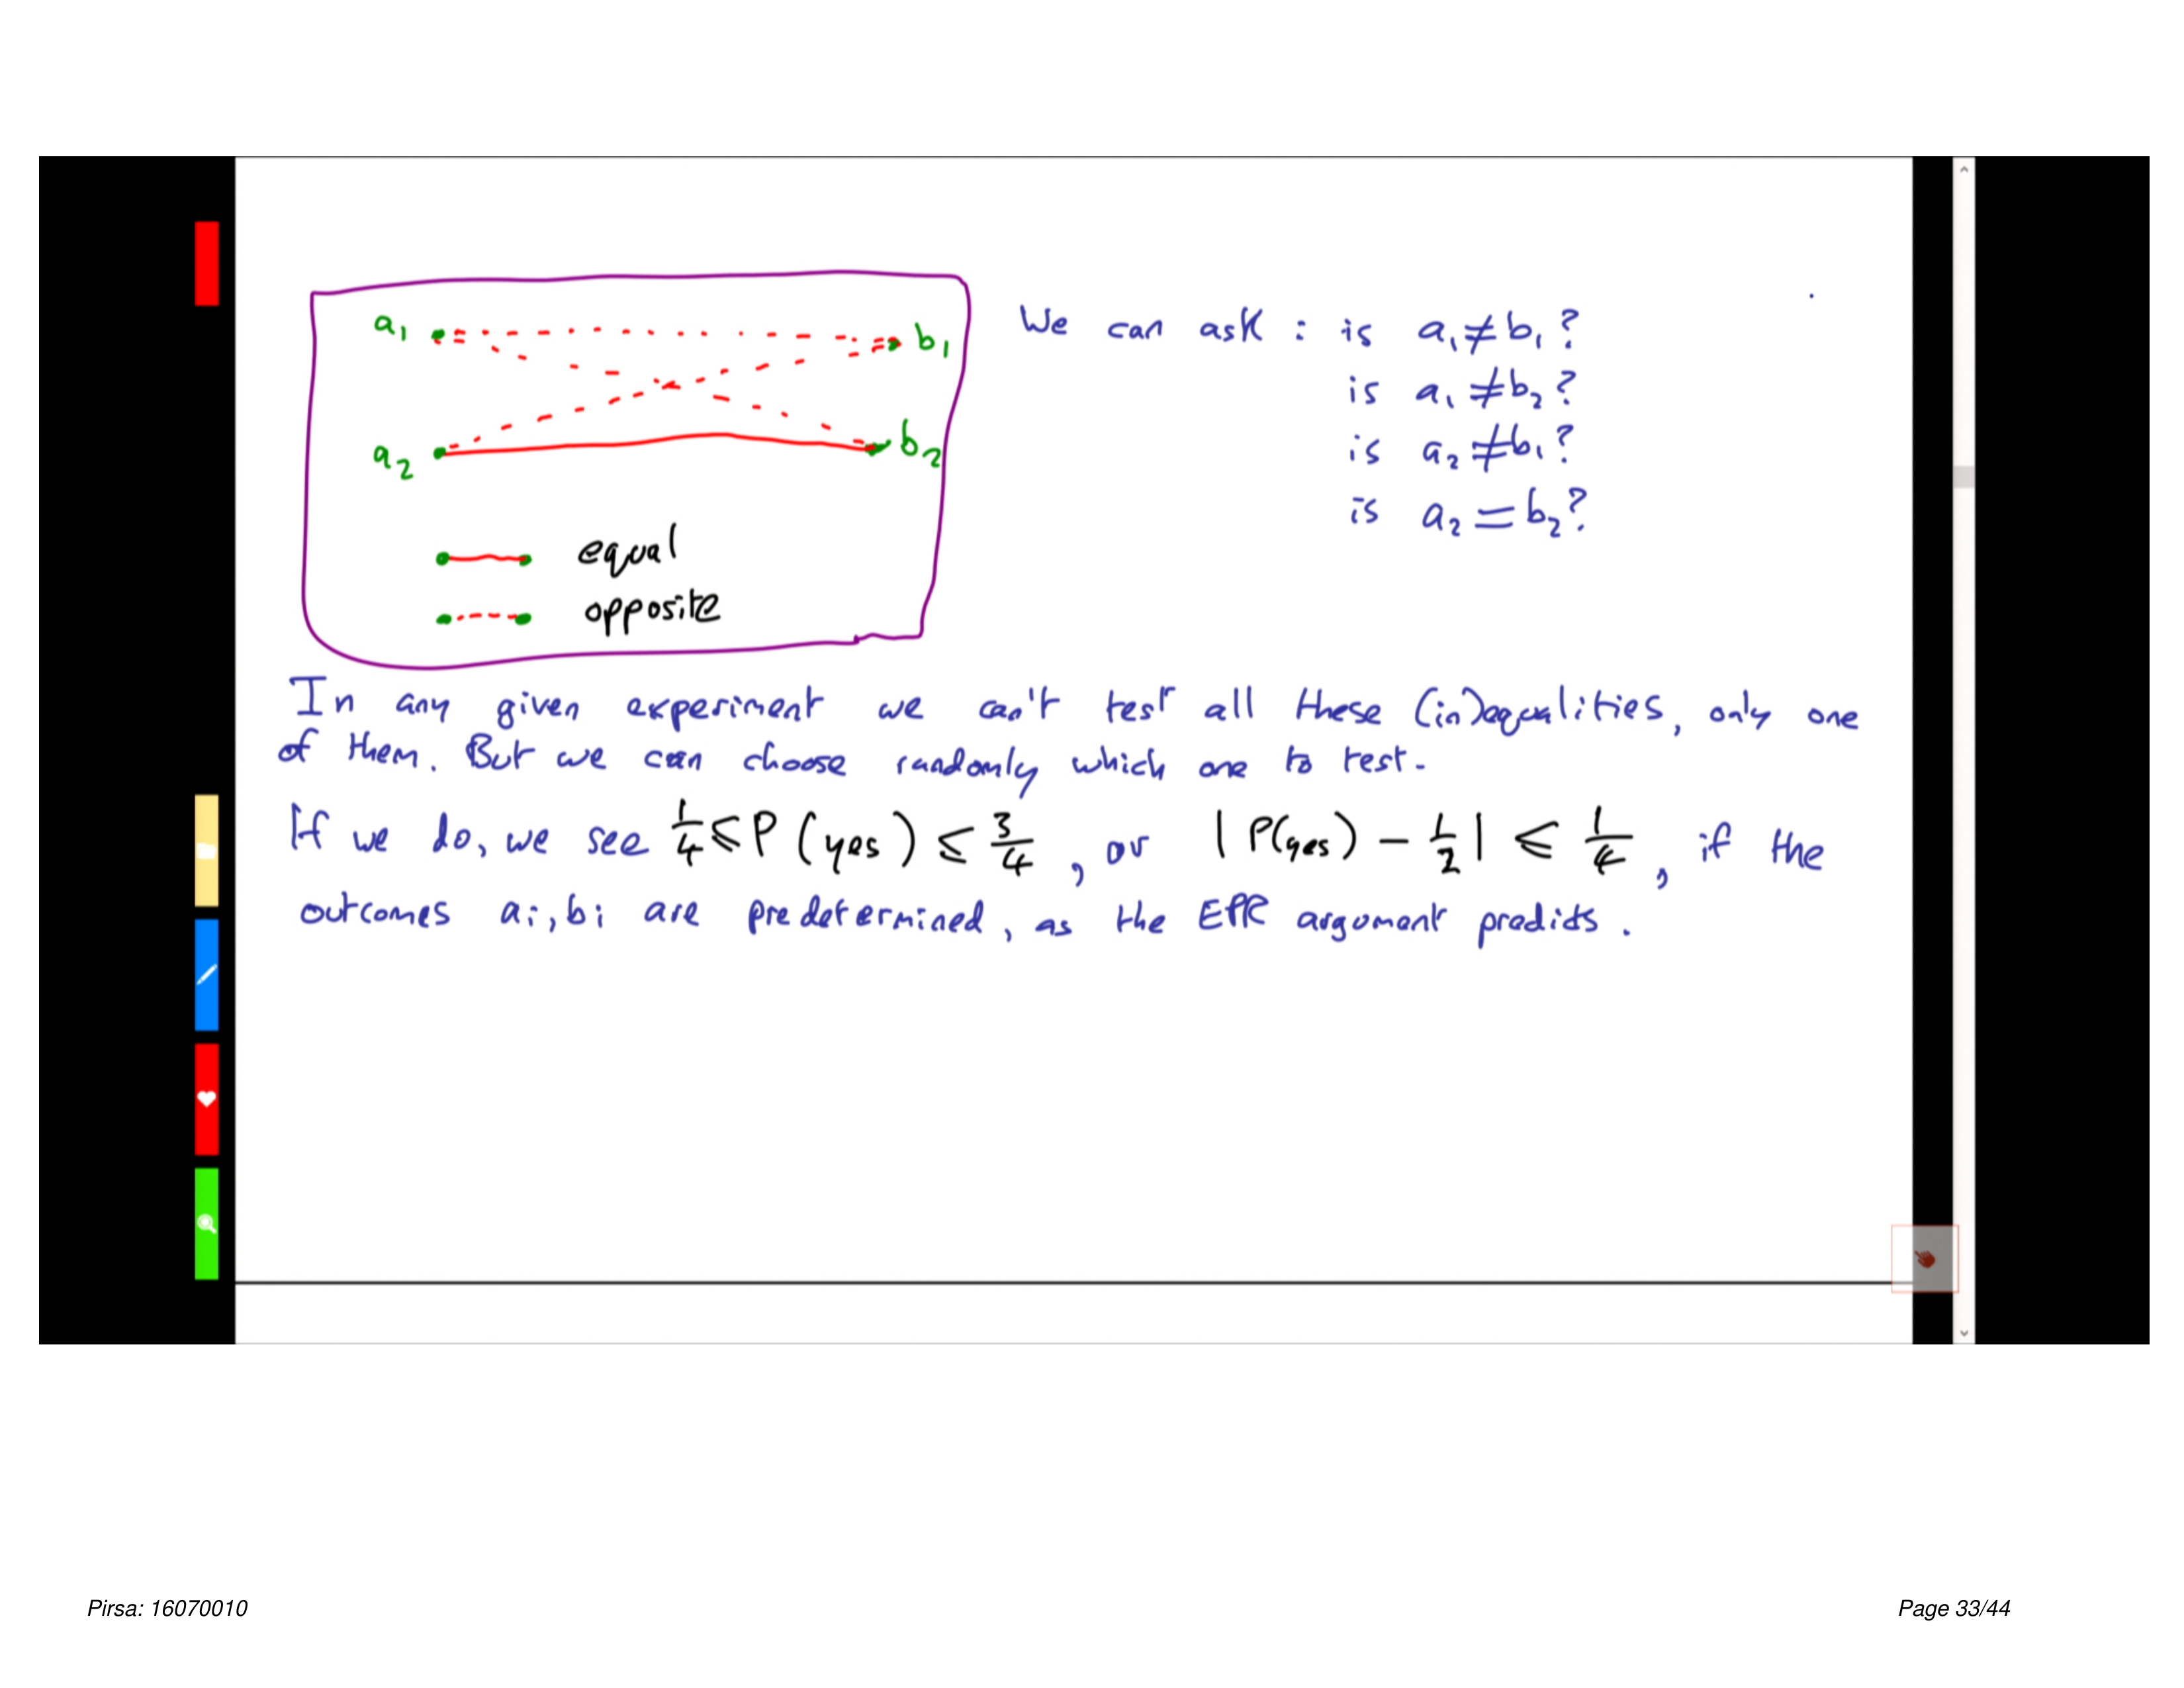 a₁ b₁
a₂ b₂
equal
opposite
We can ask : is a₁≠b₁?
is a₁≠b₂?
is a₂≠b₁?
is a₂=b₂?
In any given experiment we can't test all these (in)equalities, only one
of them. But we can choose randomly which one to test.
If we do, we see 1/4 ≤ P(yes) ≤ 3/4, or |P(yes) - 1/2| ≤ 1/4, if the
outcomes ai, bi are predetermined, as the EPR argument predicts.
Pirsa: 16070010
Page 33/44